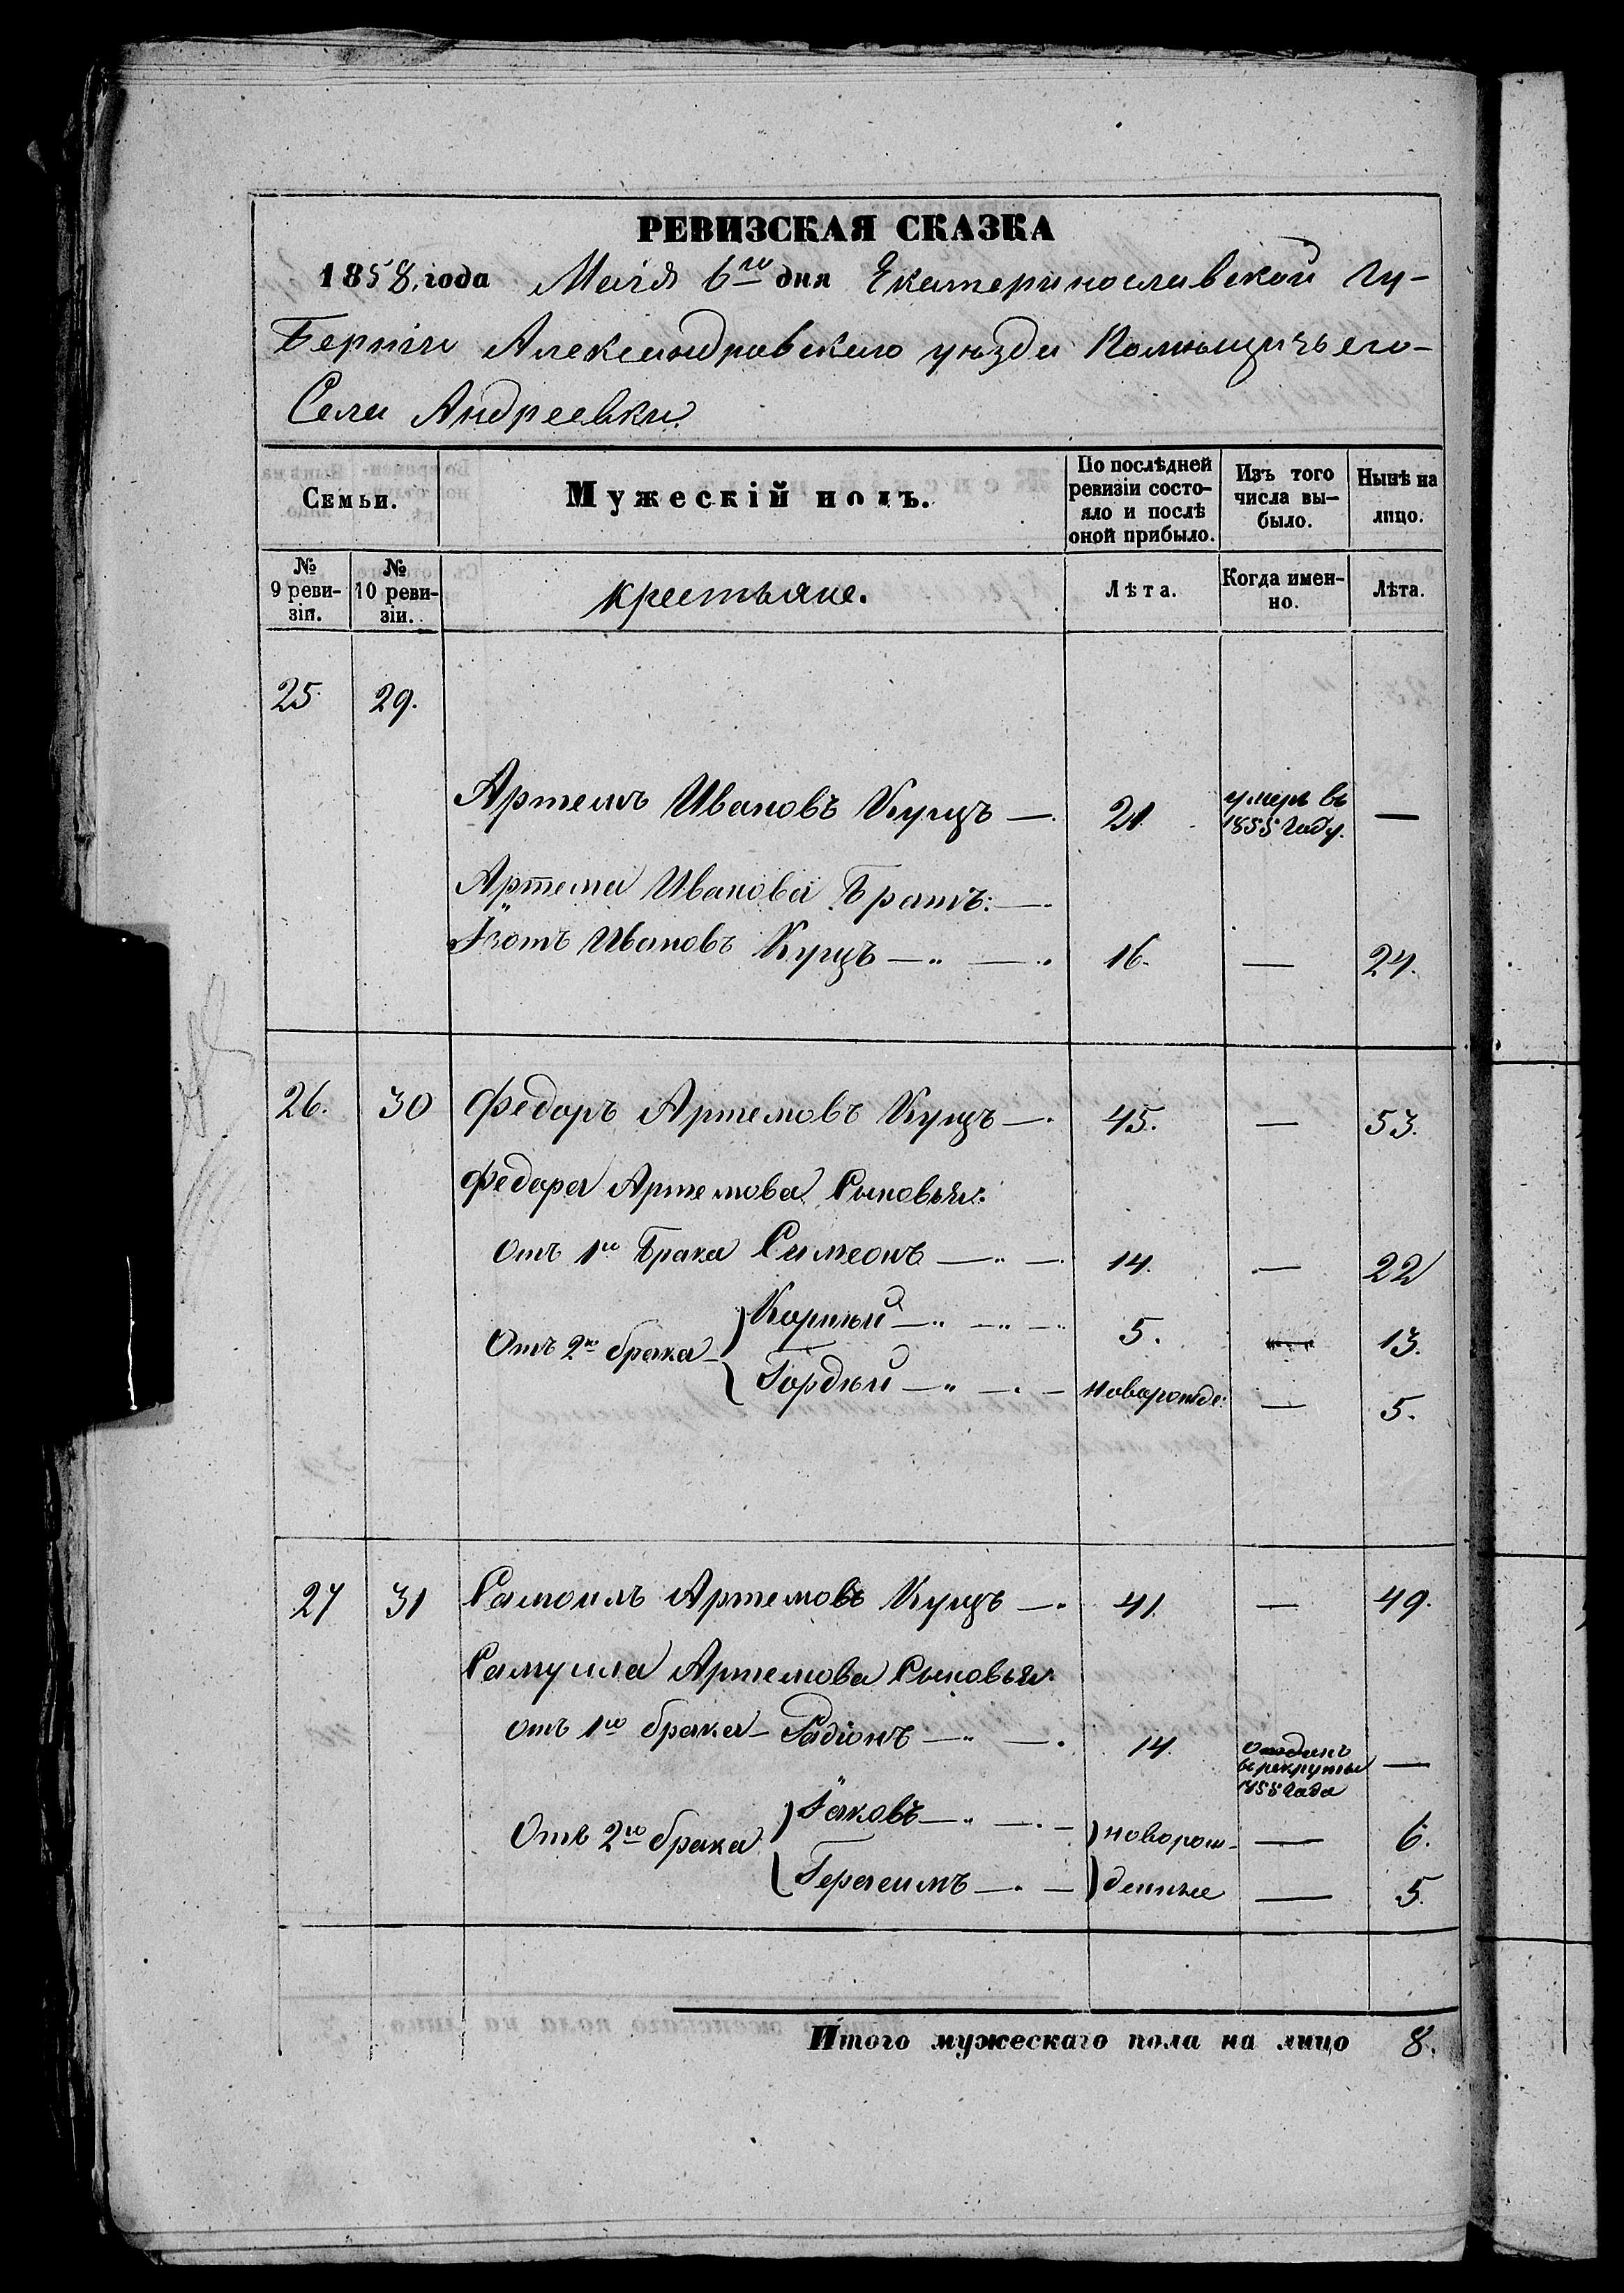 РЕВИЗСКАЯ СКАЗКА
1858. года Маія 6го дня Екатеринославской Гу-
Берніи Александровскаго уѣзда Помѣщичьяго-
Села Андреевки.
Семьи.
Мужескій полъ.
По послѣдней ревизіи состо-яло и послѣ оной прибыло.
Изъ того числа вы-было.
Нынѣ на лицо.
№ 9 реви-зіи.
№ 10 реви-зіи.
крестьяне.
Лѣта.
Когда имен-но.
Лѣта.
25 29.
Артемъ Ивановъ Куцъ — 21. умеръ въ 1855 Году. —
Артема Иванова Братъ: —
Изотъ Ивановъ Куцъ — „ — „ 16. — 24.
26. 30 Федоръ Артемовъ Куцъ — 45. — 53.
Федора Артемова Сыновья:
Отъ 1го Брака Симеонъ — 14. — 22
Отъ 2го брака — Корнѣй — „ — „ — 5. — 13.
Гордѣй — „ — „ — новорожде: — 5.
27 31 Самоилъ Артемовъ Куцъ — 41. — 49.
Самуила Артемова Сыновья:
отъ 1го брака — Радіонъ — „ — 14. Отданъ в рекруты 1855 Года —
Отъ 2го брака Іаковъ — „ — „ — новорож- — 6.
Герасимъ — „ — денные — 5.
Итого мужескаго пола на лицо 8.